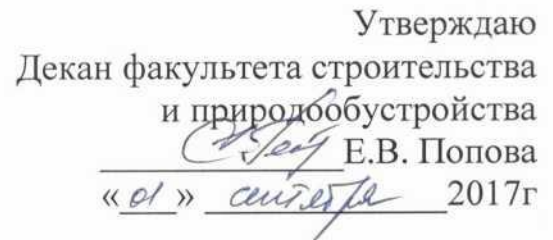 Утверждаю
Декан факультета строительства
и природообустройства
Е.В. Попова
«01» сентября 2017г